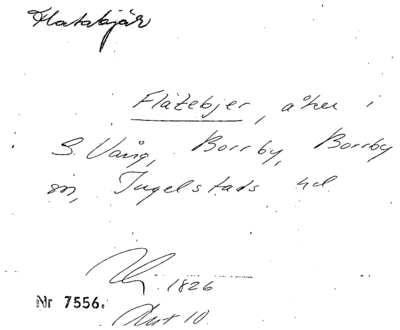 Flatebjär
Flåtebjer, åker i
S. Vång, Borrby, Borrby
sn, Ingelstads hd.
1826
Nr 7556.
Akt 10.